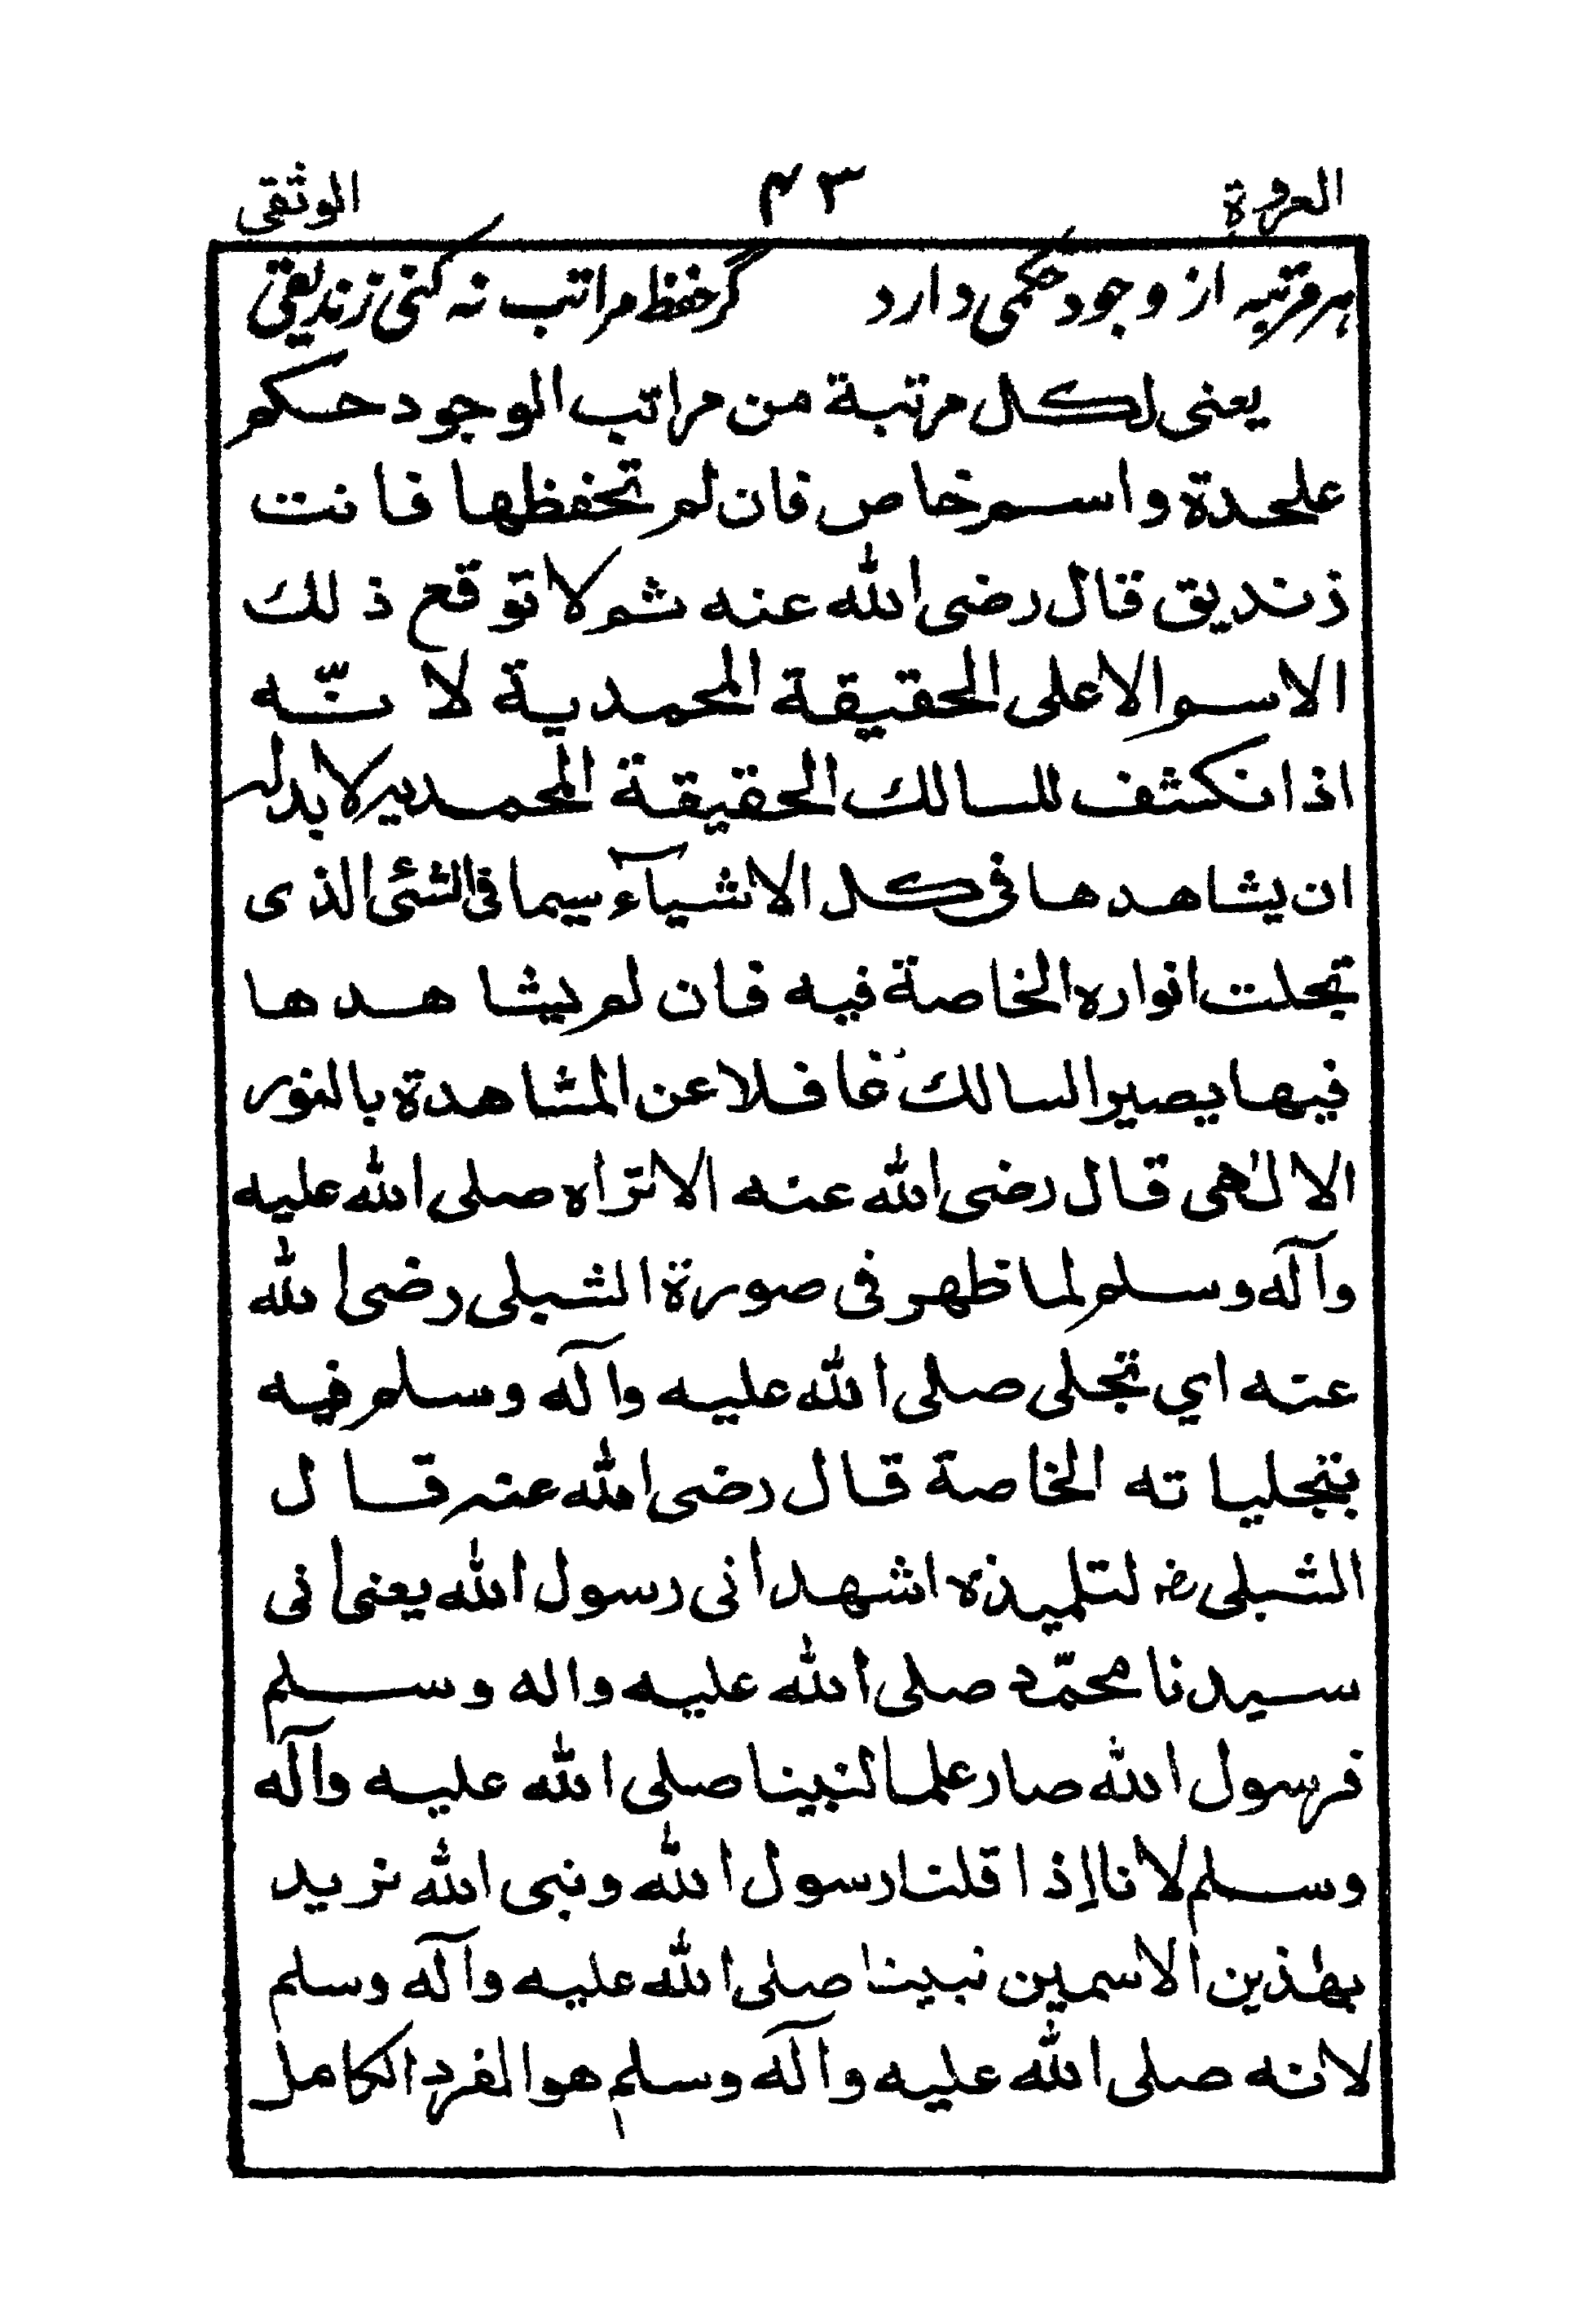 العروة ۴۳ الوثقى
هر مرتبه از وجود حكمى دارد گر حفظ مراتب نه كنى زنديقى
يعنى لكل مرتبة من مراتب الوجود حكم
علحدة واسم خاص فان لم تحفظها فانت
زنديق قال رضى الله عنه ثم لا توقع ذلك
الاسم الا على الحقيقة المحمدية لانّه
اذا نكشف للسالك الحقيقة المحمديه لابد له
ان يشاهدها فى كل الاشيآء سيما فى الشئ الذى
تجلت انواره الخاصة فيه فان لم يشاهدها
فيها يصير السالك غافلا عن المشاهدة بالنور
الالٰهى قال رضى الله عنه الا تراه صلى الله عليه
وآله وسلم لما ظهر فى صورة الشبلى رضى الله
عنه اي تجلى صلى الله عليه وآله وسلم فيه
بتجلياته الخاصة قال رضى الله عنه قال
الشبلى رضـ لتلميذه اشهد انى رسول الله يعنى انى
سيدنا محمّد صلى الله عليه واله وسلم
فرسول الله صار علما لنبينا صلى الله عليه وآله
وسلم لانا إذا قلنا رسول الله ونبى الله نريد
بهٰذين الاسمين نبينا صلى الله عليه وآله وسلم
لانه صلى الله عليه وآله وسلم هو الفرد الكامل